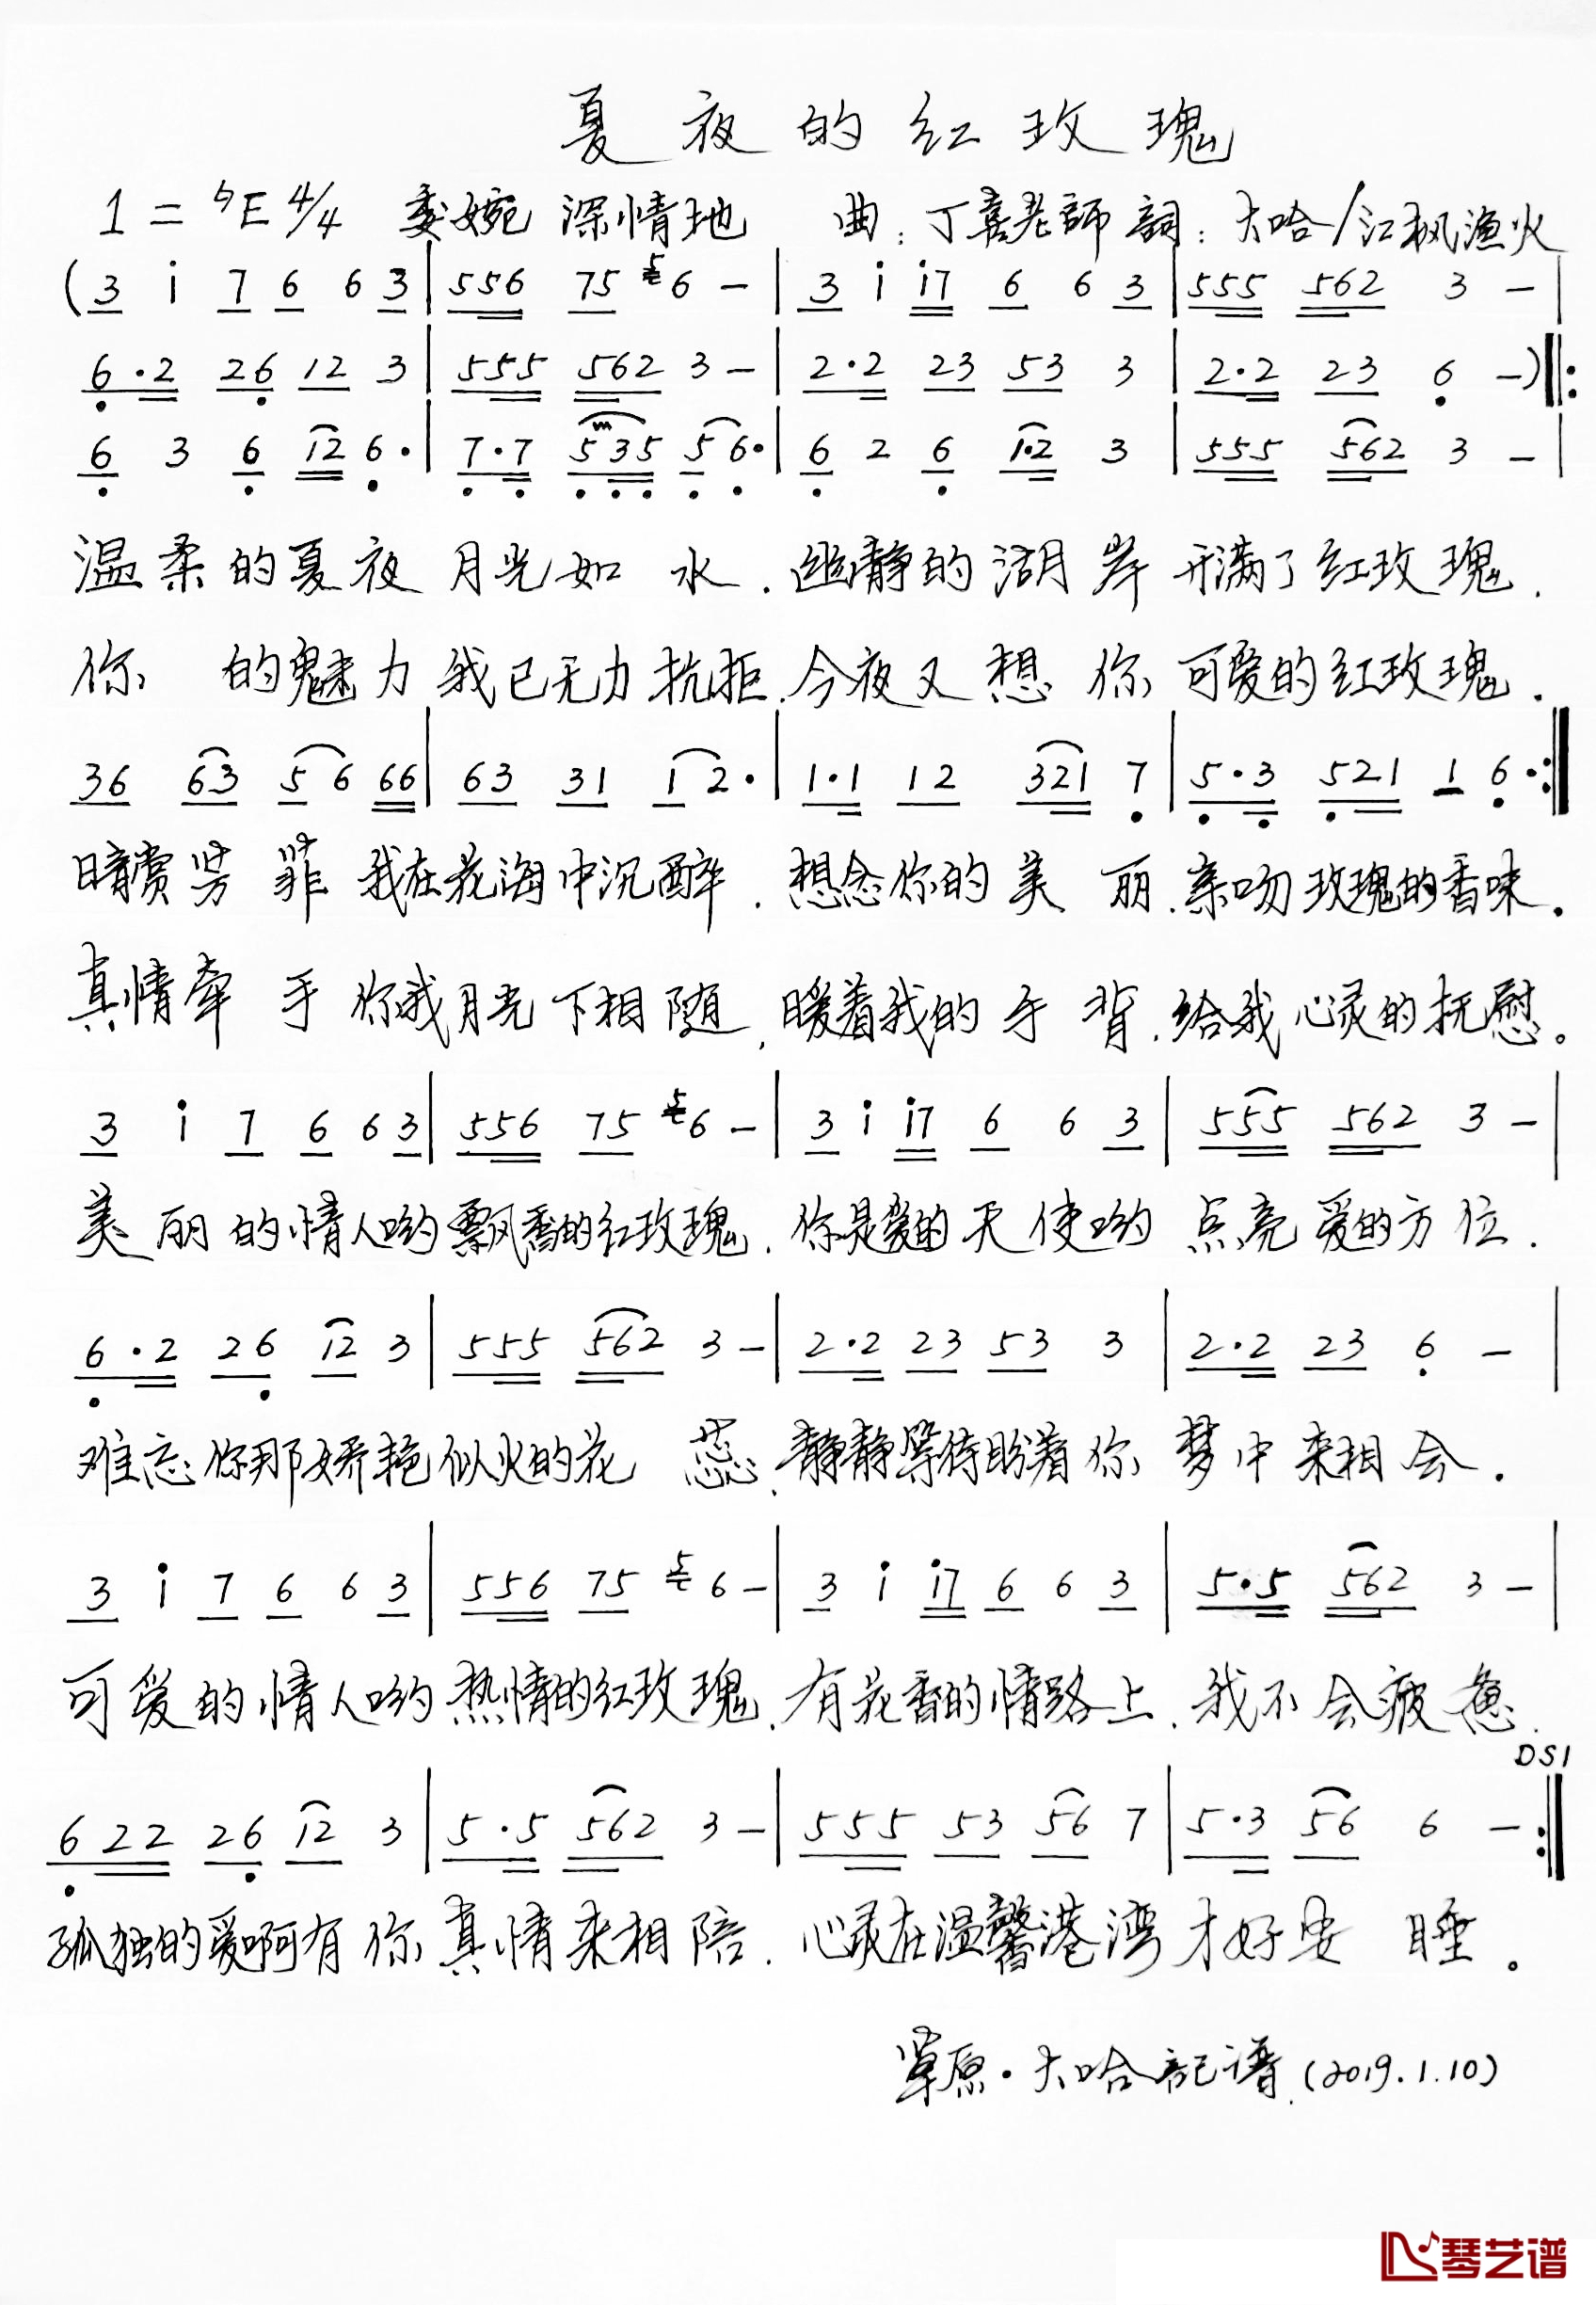 夏夜的红玫瑰
1=♮E 4/4 委婉 深情地 曲:丁喜老師 詞:大哈/江枫渔火
(3 i 7 6 6 3 | 556 75 5 6 - | 3 i i7 6 6 3 | 555 562 3 - |
6·2 26 12 3 | 555 562 3 - | 2·2 23 53 3 | 2·2 23 6 -) ‖:
6 3 6 12 6· | 7·7 535 5 6· | 6 2 6 1·2 3 | 555 562 3 - |
温柔的夏夜 月光如 水.幽静的湖月岸 开满了红玫瑰.
你 的魅力 我已无力抗拒.今夜又 想 你 可爱的红玫瑰.
36 63 5 6 66 | 63 31 1 2· | 1·1 12 321 7 | 5·3 521 1 6· :‖
暗赏芳 菲 我在花海中沉醉.想念你的 美 丽.亲吻玫瑰的香味.
真情牵 手 你我月光下相随.暖着我的 手 背.给我心灵的抚慰。
3 i 7 6 6 3 | 556 75 5 6 - | 3 i i7 6 6 3 | 555 562 3 - |
美 丽 的 情人哟 飘香的红玫瑰.你是爱的 天使哟 点亮 爱的方位.
6·2 26 12 3 | 555 562 3 - | 2·2 23 53 3 | 2·2 23 6 - |
难忘你那娇艳 似火的花 蕊.静静等待盼着你 梦中来相会.
3 i 7 6 6 3 | 556 75 5 6 - | 3 i i7 6 6 3 | 5·5 562 3 - |
可爱的情人哟 热情的红玫瑰.有花香的情路上.我不会疲惫.
DS1
622 26 12 3 | 5·5 562 3 - | 555 53 56 7 | 5·3 56 6 - :‖
孤独的爱啊有你 真情来相陪.心灵在温馨港湾才好安 睡。
草原·大哈記谱.(2019.1.10)
琴艺谱